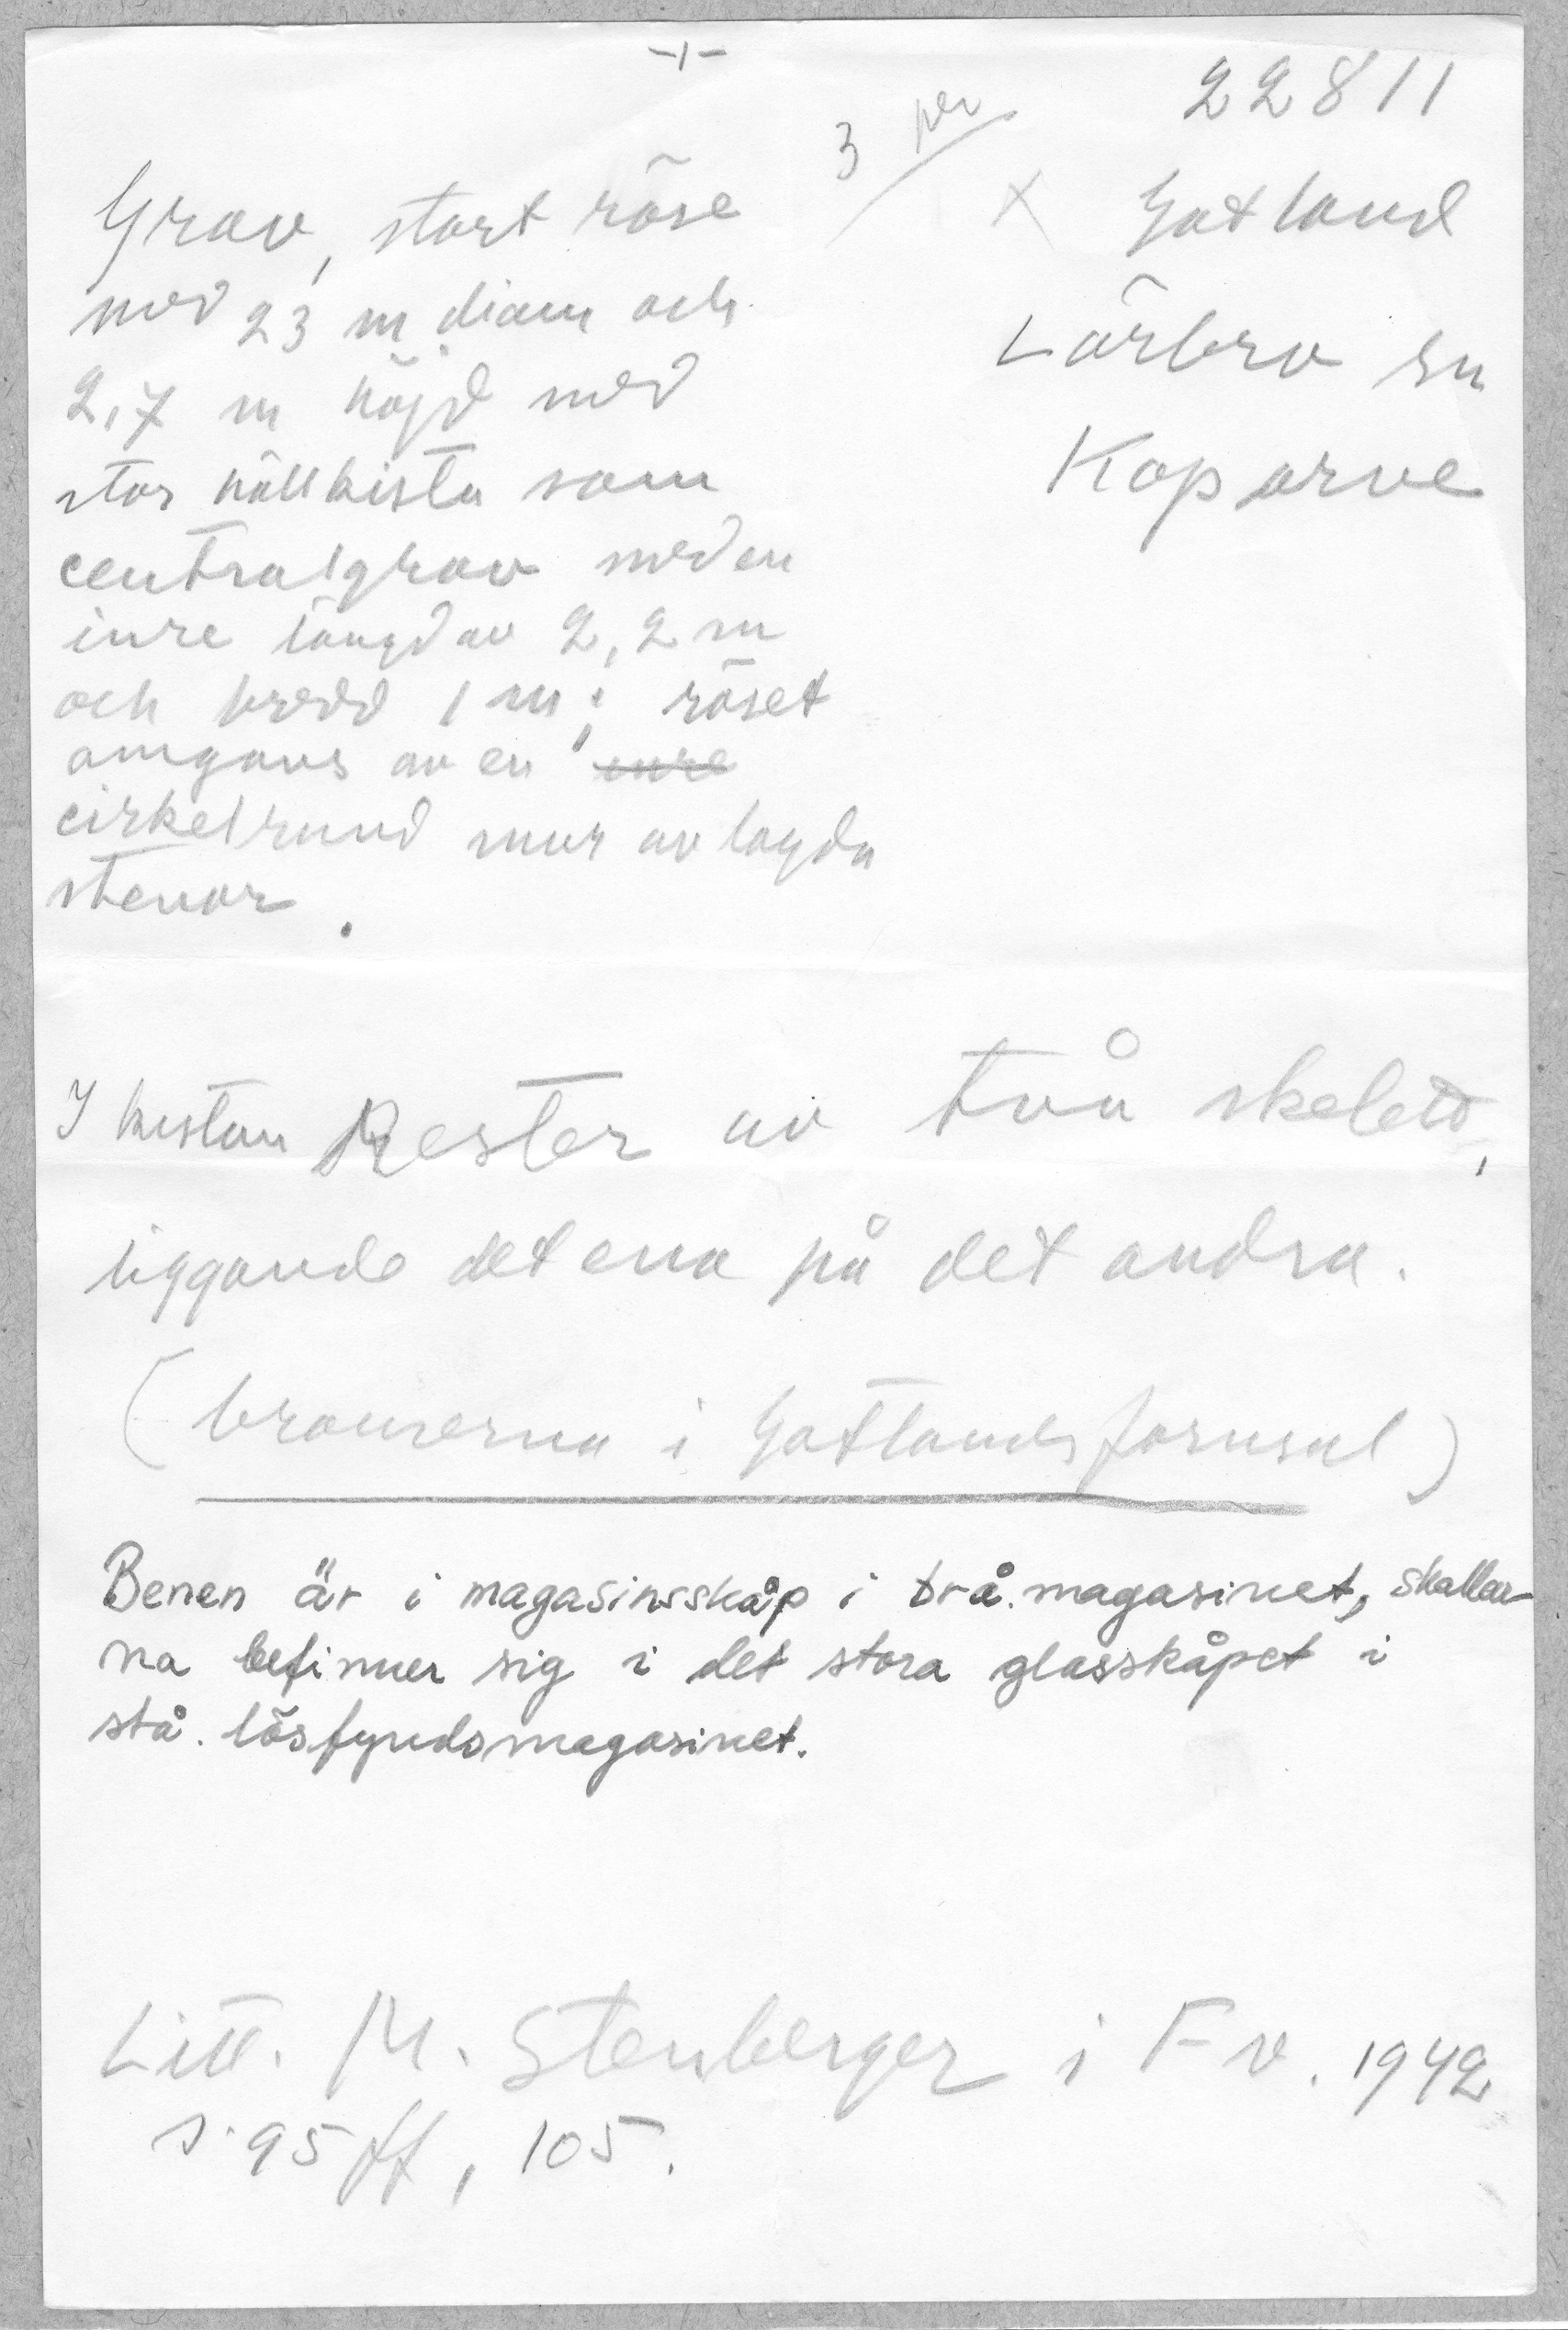 -1-
22811
3 per
x Gotland
Lärbro sn
Koparve
Grav, stort röse
med 23 m diam och
2,7 m höjd med
stor hällkista som
centralgrav med en
inre längd av 2,2 m
och bredd 1 m; röset
omgavs av en inre
cirkelrund mur av lagda
stenar.
I kistan Rester av två skelett,
liggande det ena på det andra.
(bronserna i Gotlands fornsal)
Benen är i magasinsskåp i brå. magasinet, skallar-
na befinner sig i det stora glasskåpet i
stå. lösfyndsmagasinet.
Litt. M. Stenberger i Fv. 1942
s. 95 ff, 105.